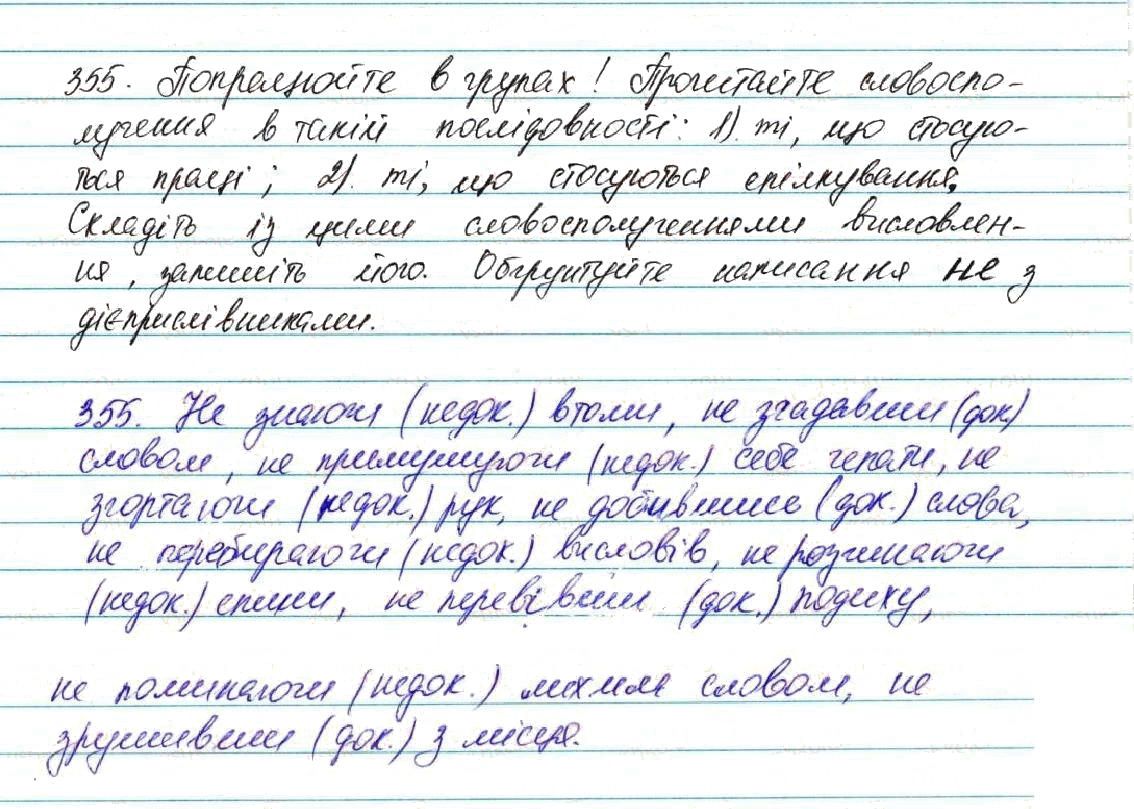 355. Попрацюйте в групах! Прочитайте словоспо-
лучення в такій послідовності: 1). ті, що стосую-
ться праці; 2). ті, що стосуються спілкування.
Складіть із цими словосполученнями висловлен-
ня, запишіть його. Обґрунтуйте написання не з
дієприслівниками.
355. Не знаючи (недок.) втоми, не згадавши (док)
словом, не примушуючи (недок.) себе чекати, не
згортаючи (недок.) рук, не добившись (док.) слова,
не перебираючи (недок.) висловів, не розгинаючи
(недок.) спини, не перевівши (док.) подиху,
не поминаючи (недок.) лихим словом, не
зрушивши (док.) з місця.